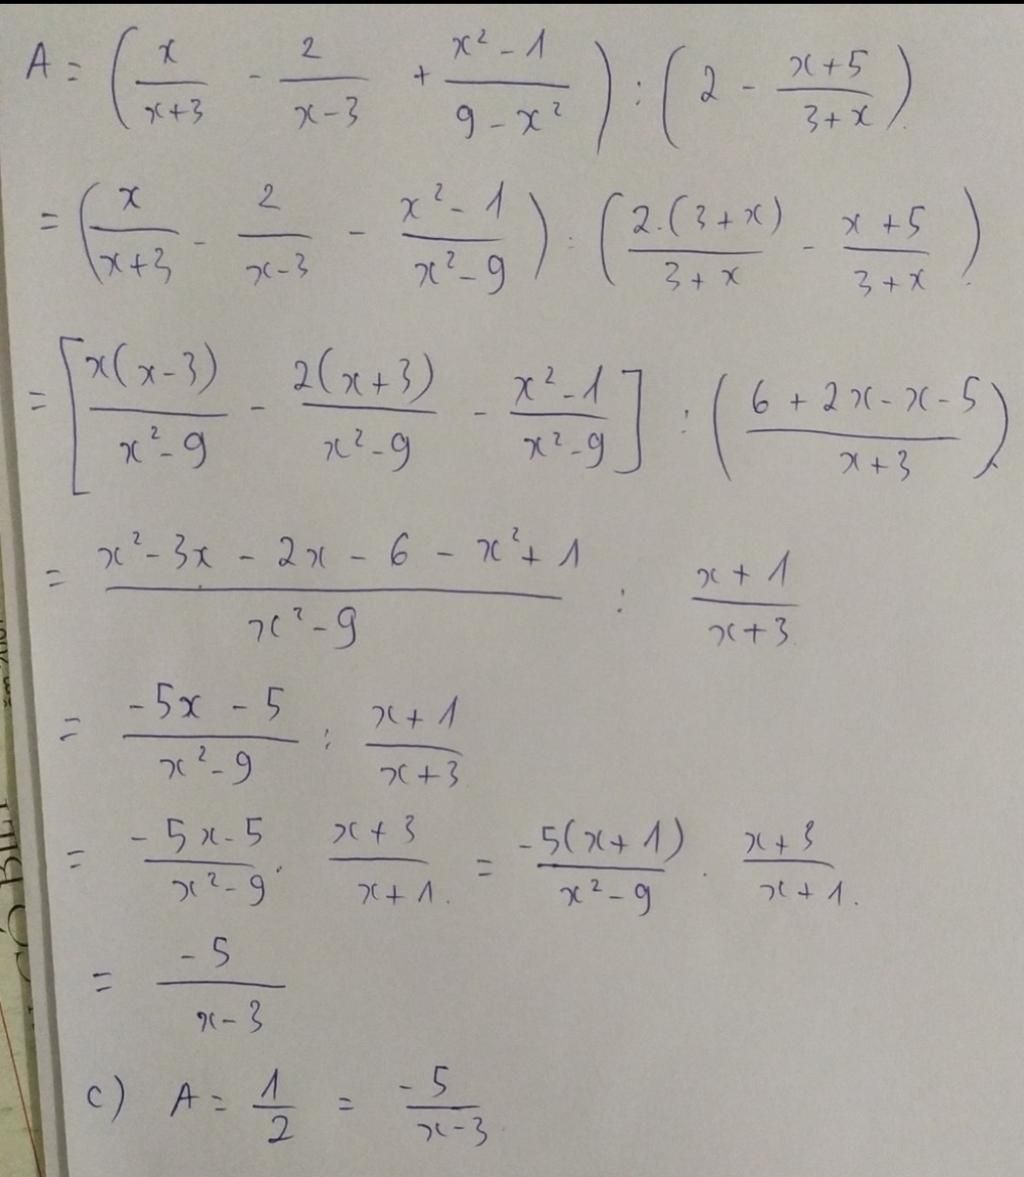 A = (x/(x+3) - 2/(x-3) + (x² - 1)/(9 - x²)) : (2 - (x+5)/(3+x))
= (x/(x+3) - 2/(x-3) - (x² - 1)/(x² - 9)) : (2.(3+x)/(3+x) - (x+5)/(3+x))
= [x(x-3)/(x²-9) - 2(x+3)/(x²-9) - (x²-1)/(x²-9)] : ((6 + 2x - x - 5)/(x+3))
= (x² - 3x - 2x - 6 - x² + 1)/(x² - 9) : (x+1)/(x+3)
= (-5x - 5)/(x² - 9) : (x+1)/(x+3)
= (-5x-5)/(x²-9) . (x+3)/(x+1) = -5(x+1)/(x²-9) . (x+3)/(x+1).
= -5/(x-3)
c) A = 1/2 = -5/(x-3)